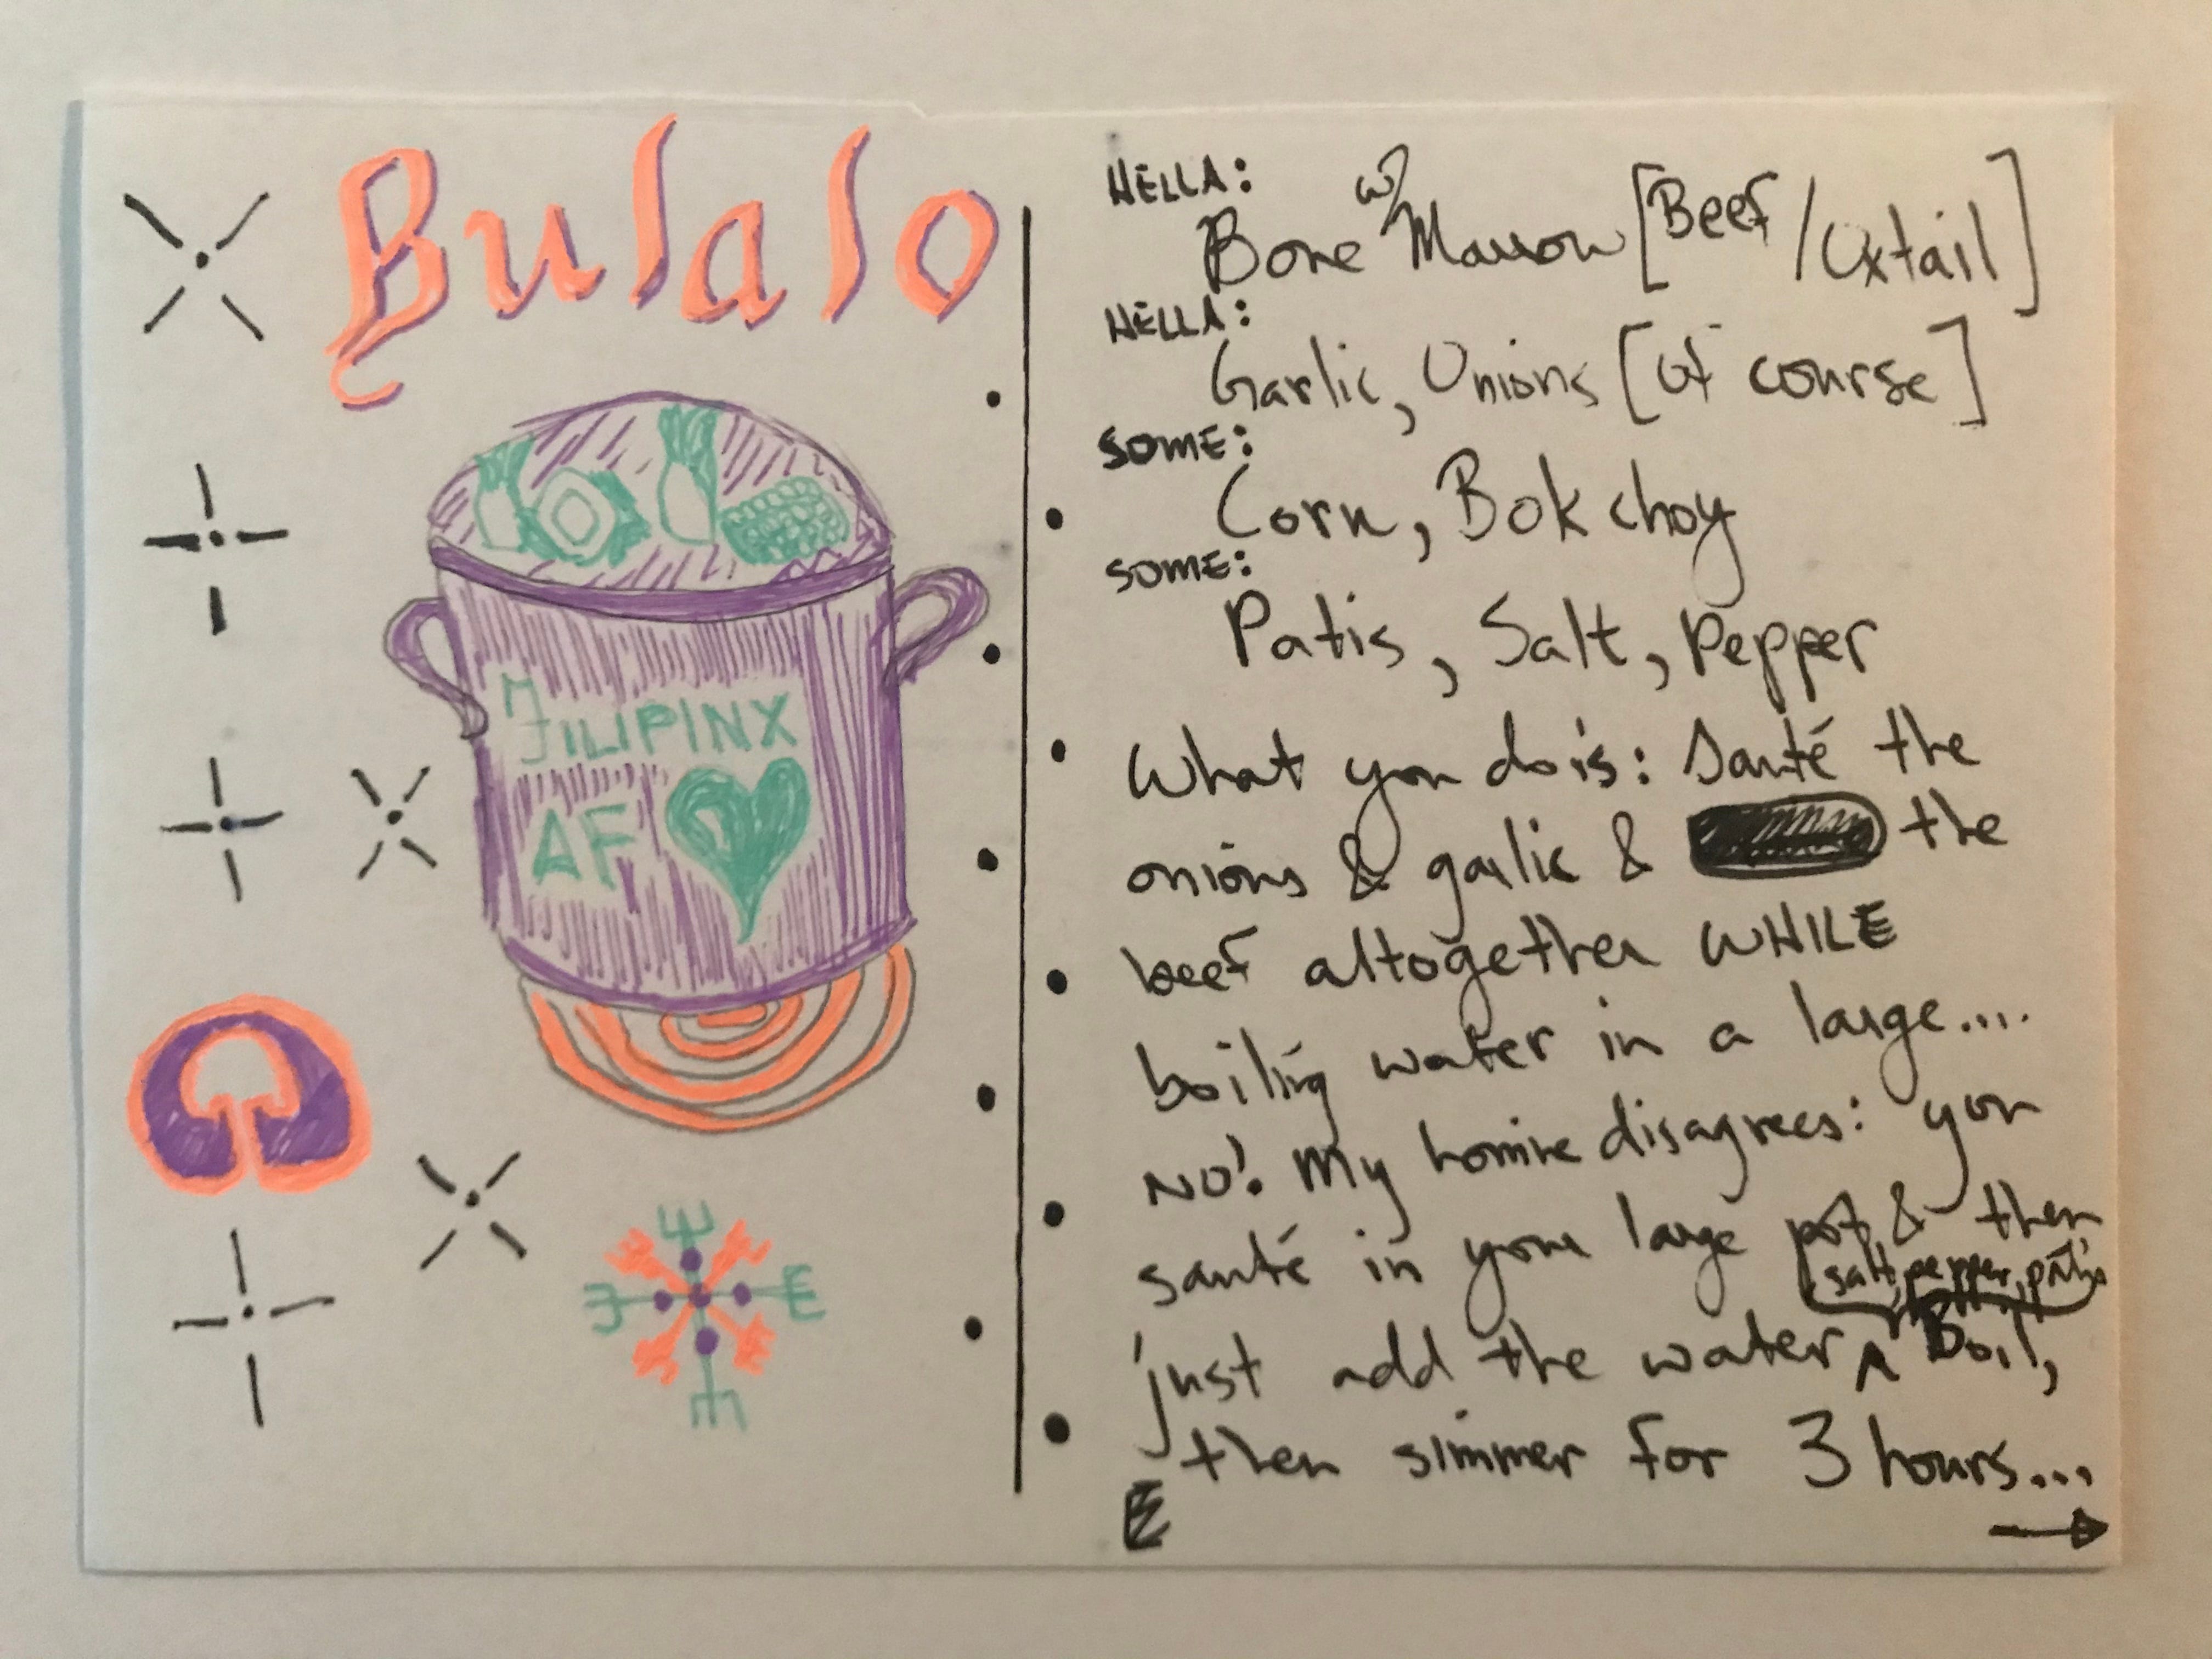 Bulalo
FILIPINX
AF
HELLA:
Bone w/ Marrow [Beef/Oxtail]
HELLA:
Garlic, Onions [of course]
SOME:
Corn, Bok choy
SOME:
Patis, Salt, Pepper
What you do is: Sauté the
onions & garlic & the
beef altogether WHILE
boiling water in a large....
NO! My homie disagrees: you
sauté in your large pot & then
salt, pepper, patis
just add the water ^ Boil,
then simmer for 3 hours...